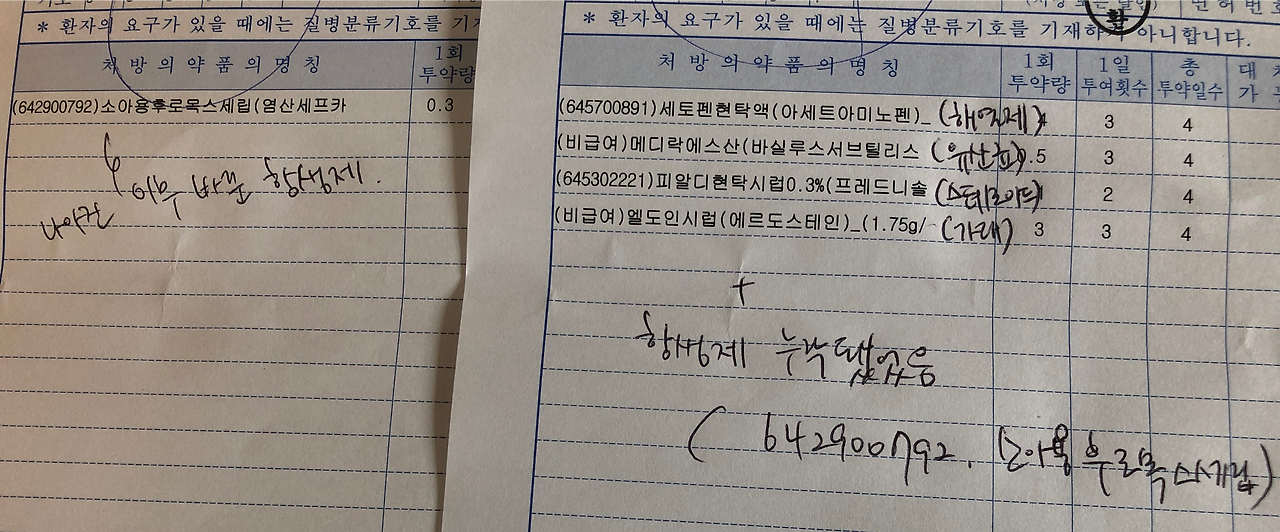 * 환자의 요구가 있을 때에는 질병분류기호를 기재
처 방 의 약 품 의 명 칭
1회
투약량
(642900792)소아용후로목스세립(염산세프카
0.3
바꾼 항생제.
* 환자의 요구가 있을 때에는 질병분류기호를 기재하지 아니합니다.
처 방 의 약 품 의 명 칭
1회
투약량
1일
투여횟수
총
투약일수
(645700891)세토펜현탁액(아세트아미노펜)_ (해열제) 3 4
(비급여)메디락에스산(바실루스서브틸리스 (유산균).5 3 4
(645302221)피알디현탁시럽0.3%(프레드니솔 (스테로이드) 2 4
(비급여)엘도인시럽(에르도스테인)_(1.75g/ (가래) 3 3 4
+
항생제 누락됐었음
( 642900792. (소아용후로목스세립)